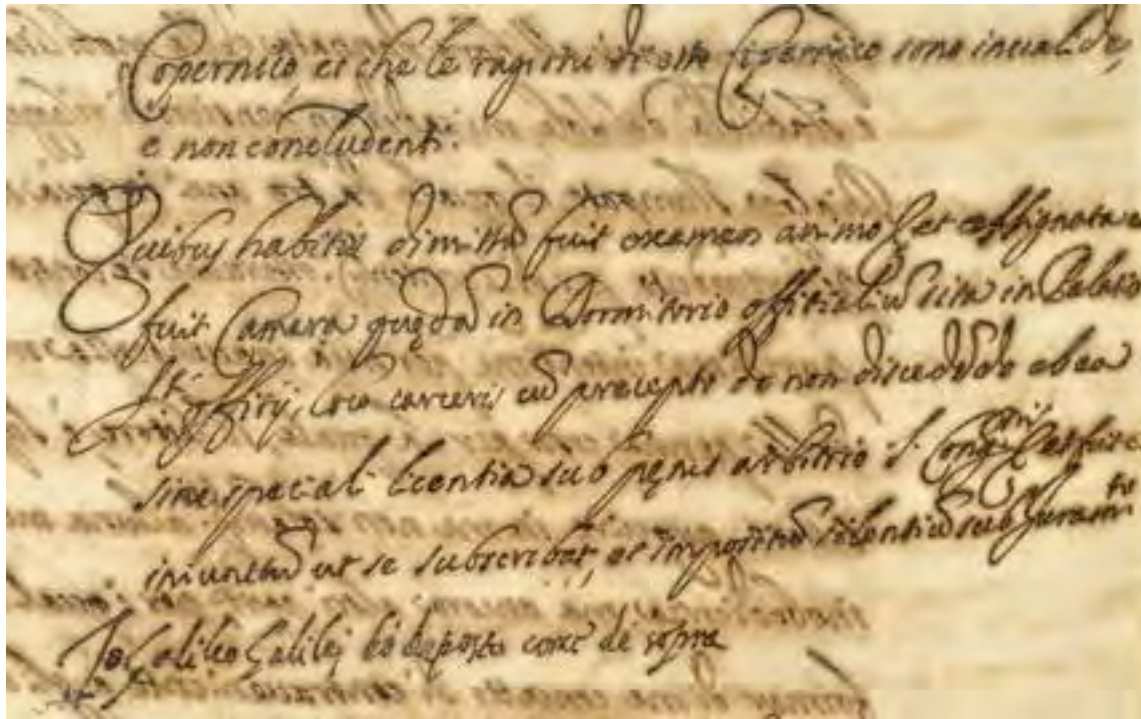 Copernico, et che le ragioni di esso Copernico sono inualide,
e non concludenti.
Quibus habitis dimissũ fuit examen animo etc et assignata
fuit Camera quędã in Dormitorio offitialiũ sita in Palatio
S.ti Offitij, loco carceris cũ precepto de non discedẽdo ab ea
sine speciali licentia sub pęnis arbitrio S. Cong.nis et fuit
iniunctũ ut se subscribat, et impositũ silentiũ sub iuram.to
Io Galileo Galilej hò deposto come di sopra